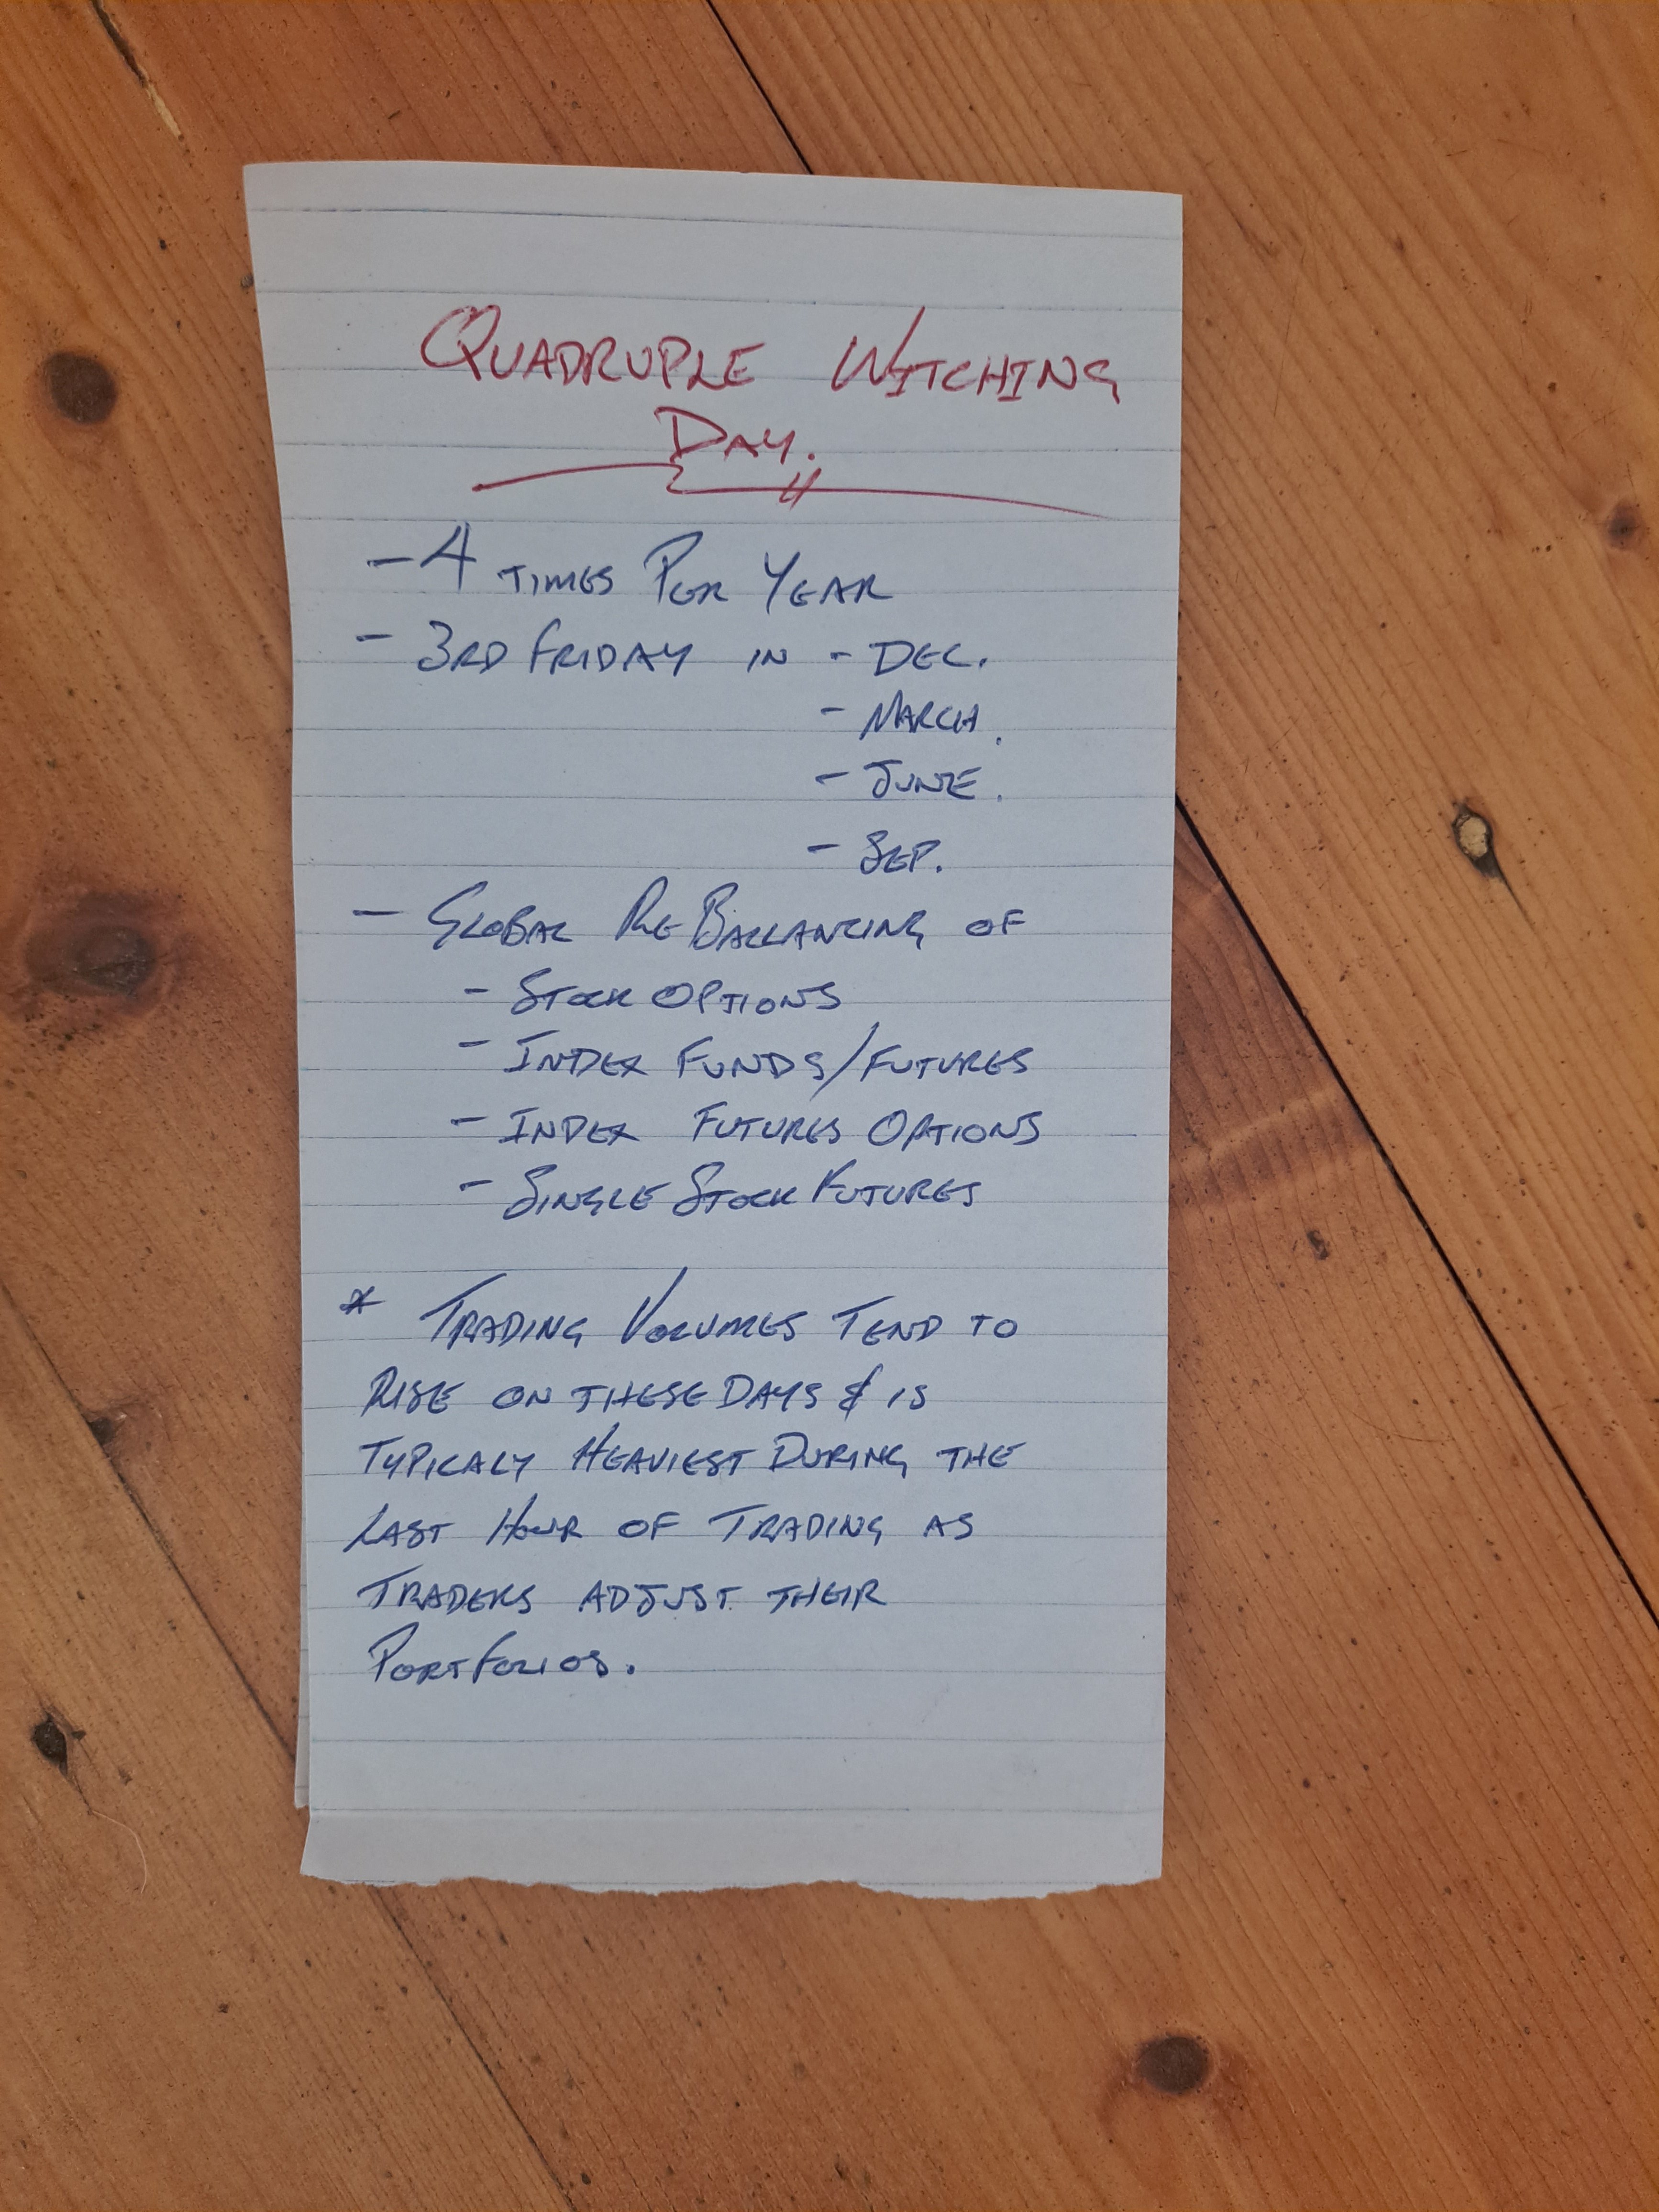 QUADRUPLE WITCHING
DAY.
- 4 TIMES PER YEAR
- 3RD FRIDAY IN - DEC.
- MARCH.
- JUNE.
- SEP.
- GLOBAL RE BALLANCING OF
- STOCK OPTIONS
- INDEX FUNDS/FUTURES
- INDEX FUTURES OPTIONS
- SINGLE STOCK FUTURES
* TRADING VOLUMES TEND TO
RISE ON THESE DAYS & IS
TYPICALY HEAVIEST DURING THE
LAST HOUR OF TRADING AS
TRADERS ADJUST THEIR
PORTFOLIOS.